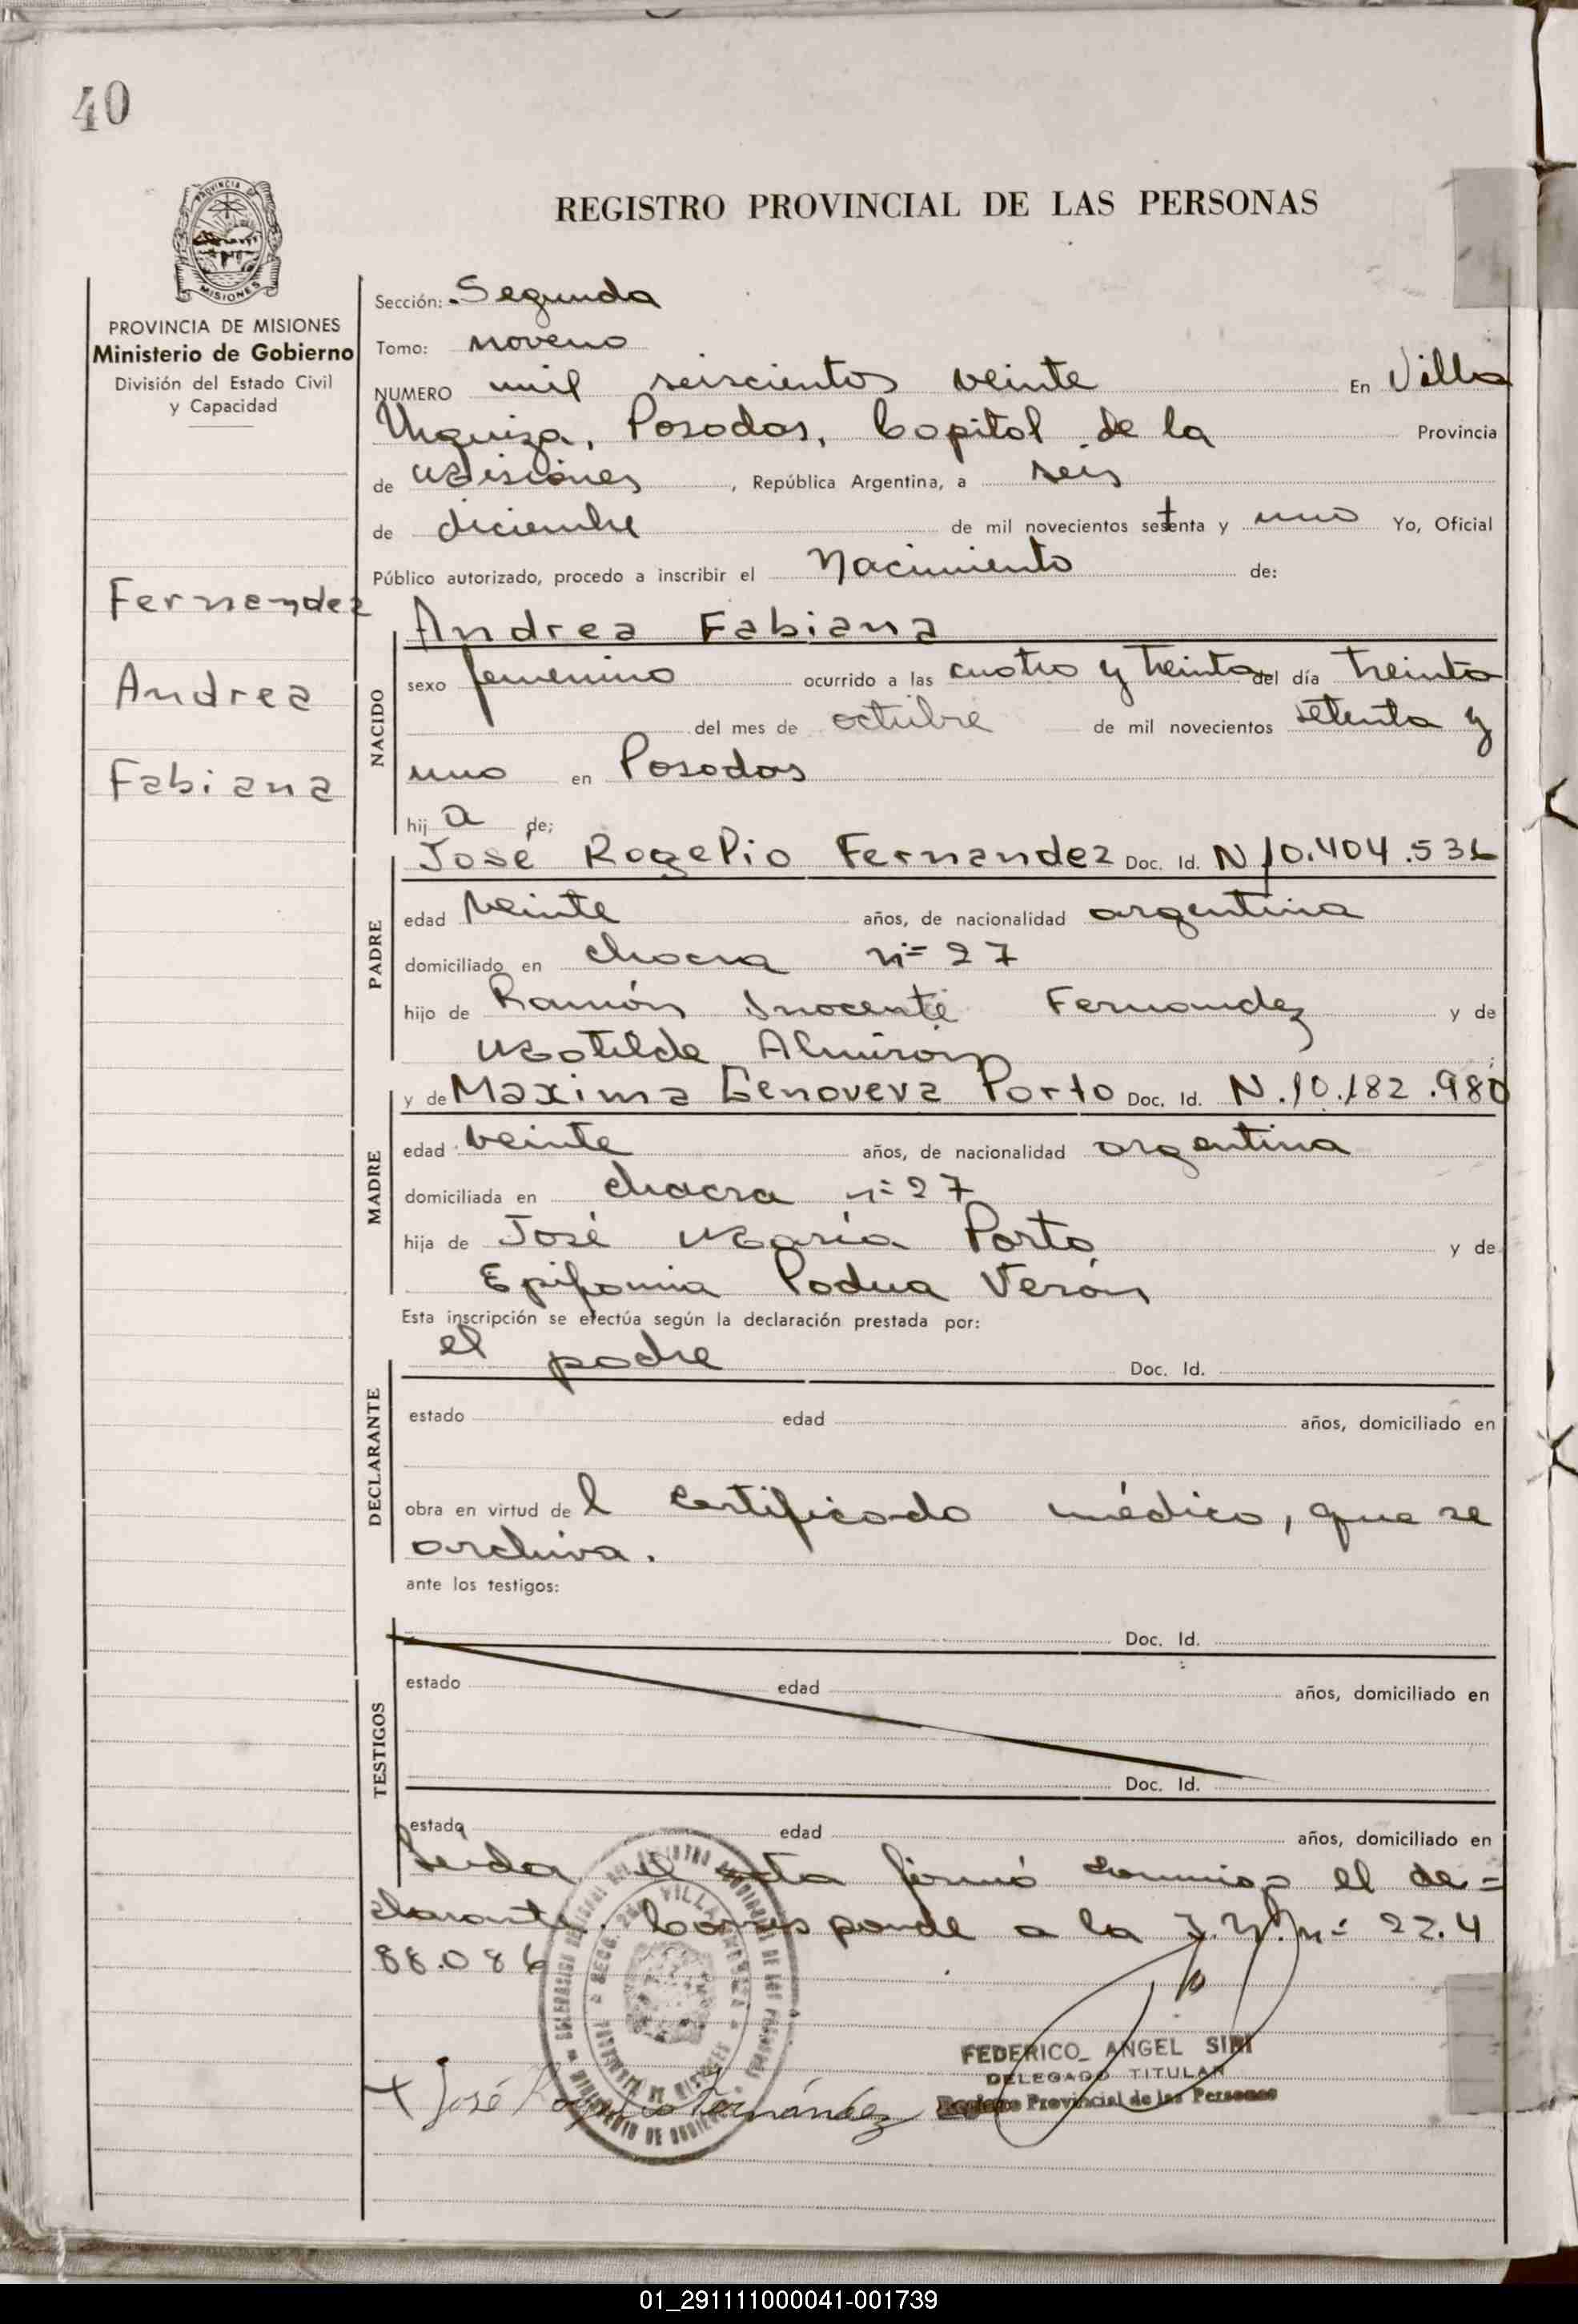 40
REGISTRO PROVINCIAL DE LAS PERSONAS
PROVINCIA DE
MISIONES
PROVINCIA DE MISIONES
Ministerio de Gobierno
División del Estado Civil
y Capacidad
Fernandez
Andrea
Fabiana
Sección: Segunda
Tomo: noveno
NUMERO mil seiscientos veinte En Villa
Urquiza, Posadas, Capital de la Provincia
de Misiones, República Argentina, a seis
de diciembre de mil novecientos setenta y uno Yo, Oficial
Público autorizado, procedo a inscribir el Nacimiento de:
NACIDO
Andrea Fabiana
sexo femenino ocurrido a las cuatro y treinta del día treinta
del mes de octubre de mil novecientos setenta y
uno en Posadas
hij a de;
PADRE
José Rogelio Fernandez Doc. Id. N 10.404.536
edad veinte años, de nacionalidad argentina
domiciliado en chacra nº 27
hijo de Ramón Inocente Fernandez y de
Matilde Almirón
MADRE
y de Maxima Genoveva Porto Doc. Id. N.10.182.980
edad veinte años, de nacionalidad argentina
domiciliada en chacra nº 27
hija de José María Porto y de
Epifania Padua Verón
Esta inscripción se efectúa según la declaración prestada por:
DECLARANTE
el padre Doc. Id.
estado edad años, domiciliado en
obra en virtud de l certificado médico, que se
archiva.
ante los testigos:
TESTIGOS
Doc. Id.
estado edad años, domiciliado en
Doc. Id.
estado edad años, domiciliado en
Leída el acta firmó conmigo el de=
clarante. Corresponde a la nº 22.4
88.086
FEDERICO ANGEL SIRI
DELEGADO TITULAR
Registro Provincial de las Personas
José Rogelio Fernández
01_291111000041-001739